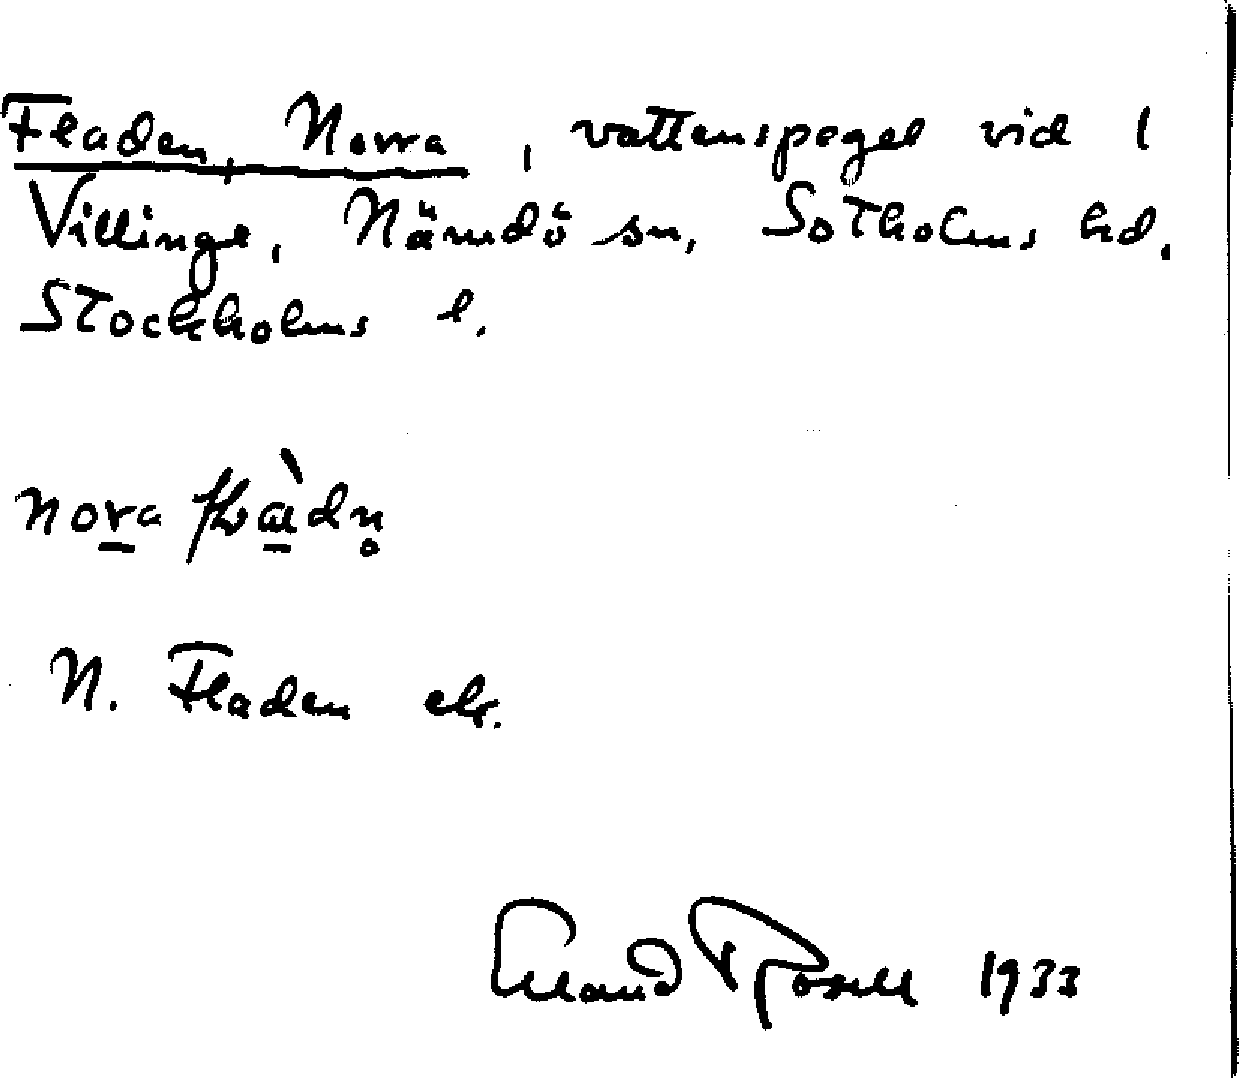 Fladen, Norra, vattenspegel vid l
Villinge, Nämdö sn, Sotholms hd.
Stockholms l.
nora
N. Fladen ek.
Erland Rosell 1933